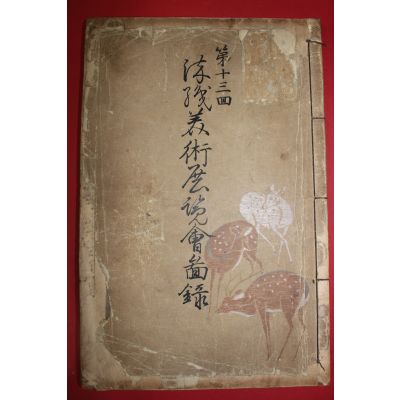 第十三回
染織美術展覧會圖錄